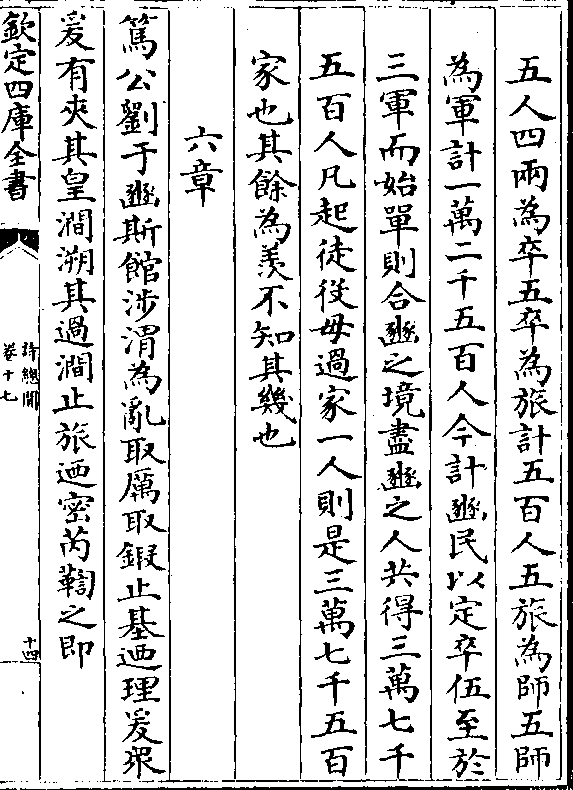 五人四兩為卒五卒為旅計五百人五旅為師五師
為軍計一萬二千五百人今計豳民以定卒伍至於
三軍而始單則合豳之境盡豳之人共得三萬七千
五百人凡起徒役毋過家一人則是三萬七千五百
家也其餘為羨不知其幾也
六章
篤公劉于豳斯館涉渭為亂取厲取鍜止基廼理爰衆
爰有夾其皇澗溯其過澗止旅廼密芮鞫之即
欽定四庫全書
詩總聞
卷十七
十四